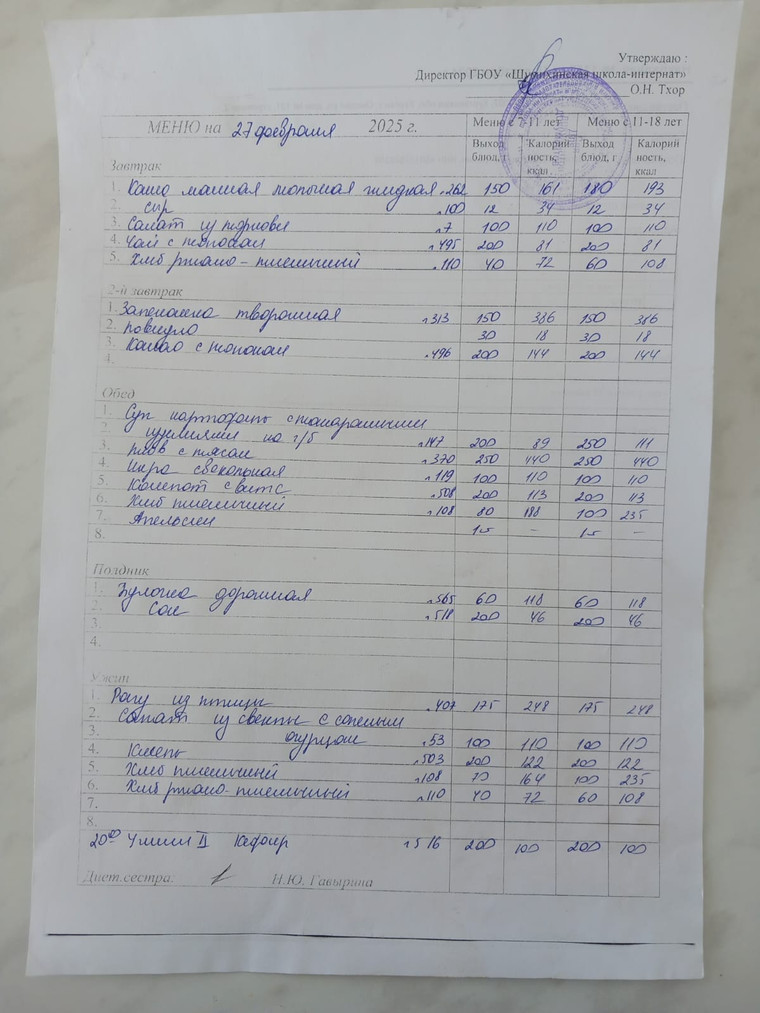 Утверждаю :
Директор ГБОУ «Шумихинская школа-интернат»
О.Н. Тхор
МЕНЮ на 27 февраля 2025 г. Меню с 7-11 лет Меню с 11-18 лет
Выход блюд, г Калорийность, ккал Выход блюд, г Калорийность, ккал
Завтрак
1. Каша манная молочная жидкая №262 150 161 180 193
2. Сыр №100 12 34 12 34
3. Салат из моркови №7 100 110 100 110
4. Чай с молоком №495 200 81 200 81
5. Хлеб ржано-пшеничный №110 40 72 60 108
2-й завтрак
1. Запеканка творожная №313 150 386 150 386
2. Повидло 30 18 30 18
3. Какао с молоком №496 200 144 200 144
4.
Обед
1. Суп картофель с макаронными
2. изделиями на г/б №147 200 89 250 111
3. Плов с мясом №370 250 440 250 440
4. Икра свекольная №119 100 110 100 110
5. Компот с вит С №508 200 113 200 113
6. Хлеб пшеничный №108 80 188 100 235
7. Апельсин 1-5 – 1-5 –
8.
Полдник
1. Булочка дорожная №565 60 118 60 118
2. Сок №518 200 46 200 46
3.
4.
Ужин
1. Рагу из птицы №407 175 248 175 248
2. Салат из свеклы с соленым
3. огурцом №53 100 110 100 110
4. Кисель №503 200 122 200 122
5. Хлеб пшеничный №108 70 164 100 235
6. Хлеб ржано-пшеничный №110 40 72 60 108
7.
8.
20⁰⁰ Ужин II Кефир №516 200 100 200 100
Диет.сестра: Н.Ю. Гавырина